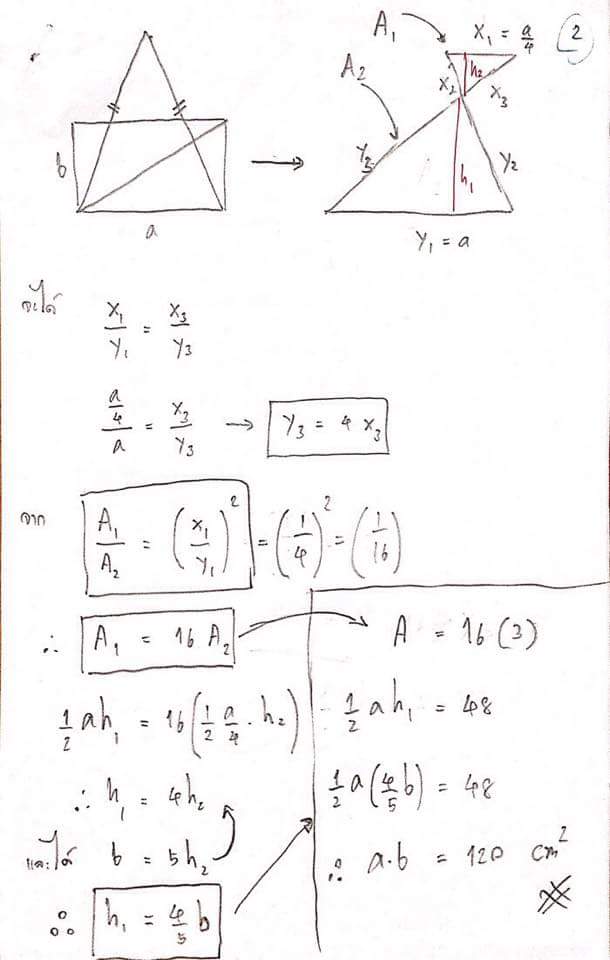 2
b
a
A₁
X₁ = a/4
A₂
h₂
X₂
X₃
Y₃
h₁
Y₂
Y₁ = a
จะได้
X₁/Y₁ = X₃/Y₃
(a/4)/a = X₃/Y₃ → Y₃ = 4 X₃
จาก
A₁/A₂ = (X₁/Y₁)² = (1/4)² = (1/16)
∴ A₁ = 16 A₂
1/2 ah₁ = 16(1/2 a/4 · h₂)
∴ h₁ = 4h₂
และได้ b = 5h₂
∴ h₁ = 4/5 b
A = 16 (3)
1/2 a h₁ = 48
1/2 a(4/5 b) = 48
∴ a·b = 120 cm²